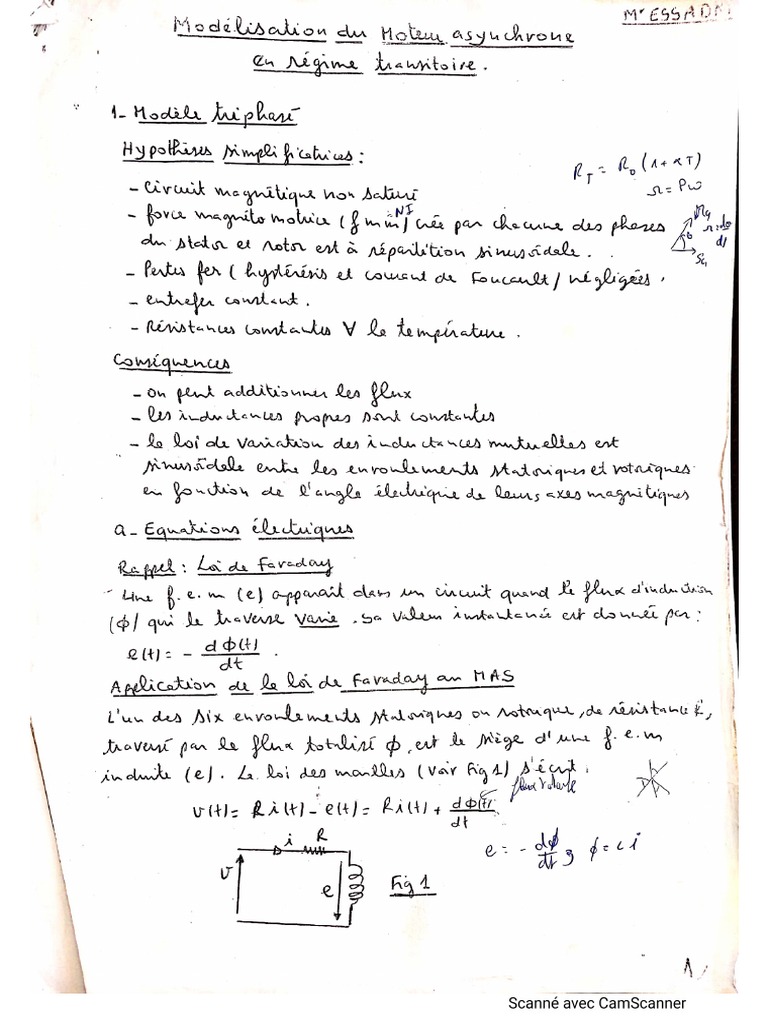 Mr ESSADN
Modélisation du Moteur asynchrone
en régime transitoire.
1- Modèle triphasé
Hypothèses simplificatrices :
R_T = R_0 (1 + αT)
Ω = Pω
- Circuit magnétique non saturé
- force magnéto motrice (f m m) créée par chacune des phases
NI
du stator et rotor est à répartition sinusoïdale.
θ
- Pertes fer (hystérésis et courant de Foucault) négligées.
- entrefer constant.
- Résistances constantes ∀ la température.
Conséquences
- on peut additionner les flux
- les inductances propres sont constantes
- la loi de variation des inductances mutuelles est
sinusoïdale entre les enroulements statoriques et rotoriques
en fonction de l'angle électrique de leurs axes magnétiques
a- Equations électriques
Rappel : Loi de Faraday
Une f.e.m (e) apparait dans un circuit quand le flux d'induction
(ϕ) qui le traverse varie. Sa valeur instantanée est donnée par :
e(t) = - dϕ(t)/dt .
Application de la loi de Faraday au MAS
L'un des six enroulements statoriques ou rotorique, de résistance R,
traversé par le flux totalisé ϕ, est le siège d'une f.e.m
induite (e). La loi des mailles (voir Fig 1) s'écrit.
v(t) = R i(t) - e(t) = R i(t) + dϕ(t)/dt
e = - dϕ/dt , ϕ = L i
i R
v e
Fig 1
1
Scanné avec CamScanner